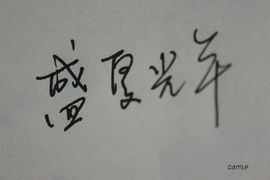 盛夏光年
damie